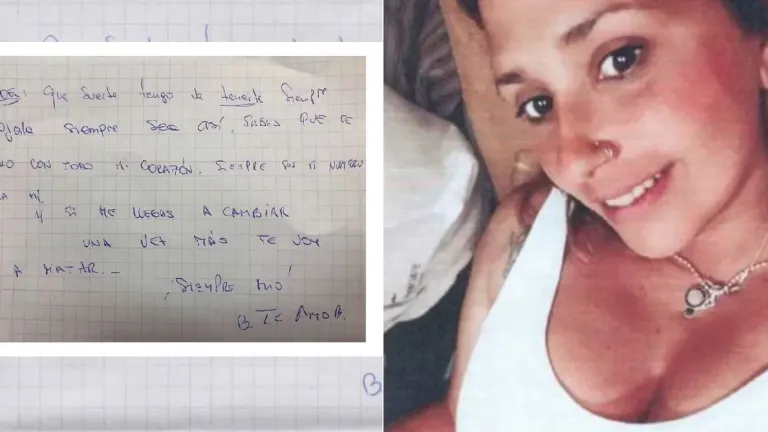 : Que suerte tengo de tenerte siempre
ojala siempre sea así, sabes que te
MO CON TODO MI CORAZÓN. SIEMPRE MI NUMERO
Y SI ME LLEGAS A CAMBIAR
UNA VEZ MÁS TE VOY
A MATAR.-
¡SIEMPRE MIO!
B TE AMO B.
B